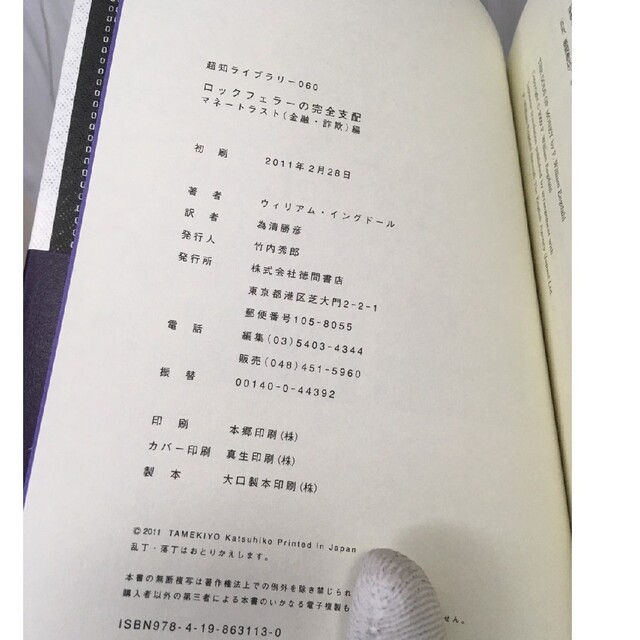 超知ライブラリー060
ロックフェラーの完全支配
マネートラスト(金融・詐欺)編
初 刷 2011年2月28日
著 者 ウィリアム・イングドール
訳 者 為清勝彦
発行人 竹内秀郎
発行所 株式会社徳間書店
東京都港区芝大門2-2-1
郵便番号105-8055
電 話 編集(03)5403-4344
販売(048)451-5960
振 替 00140-0-44392
印 刷 本郷印刷(株)
カバー印刷 真生印刷(株)
製 本 大口製本印刷(株)
©2011 TAMEKIYO Katsuhiko Printed in Japan
乱丁・落丁はおとりかえします。
本書の無断複写は著作権法上での例外を除き禁じられ
購入者以外の第三者による本書のいかなる電子複製も
せん。
ISBN978-4-19-863113-0